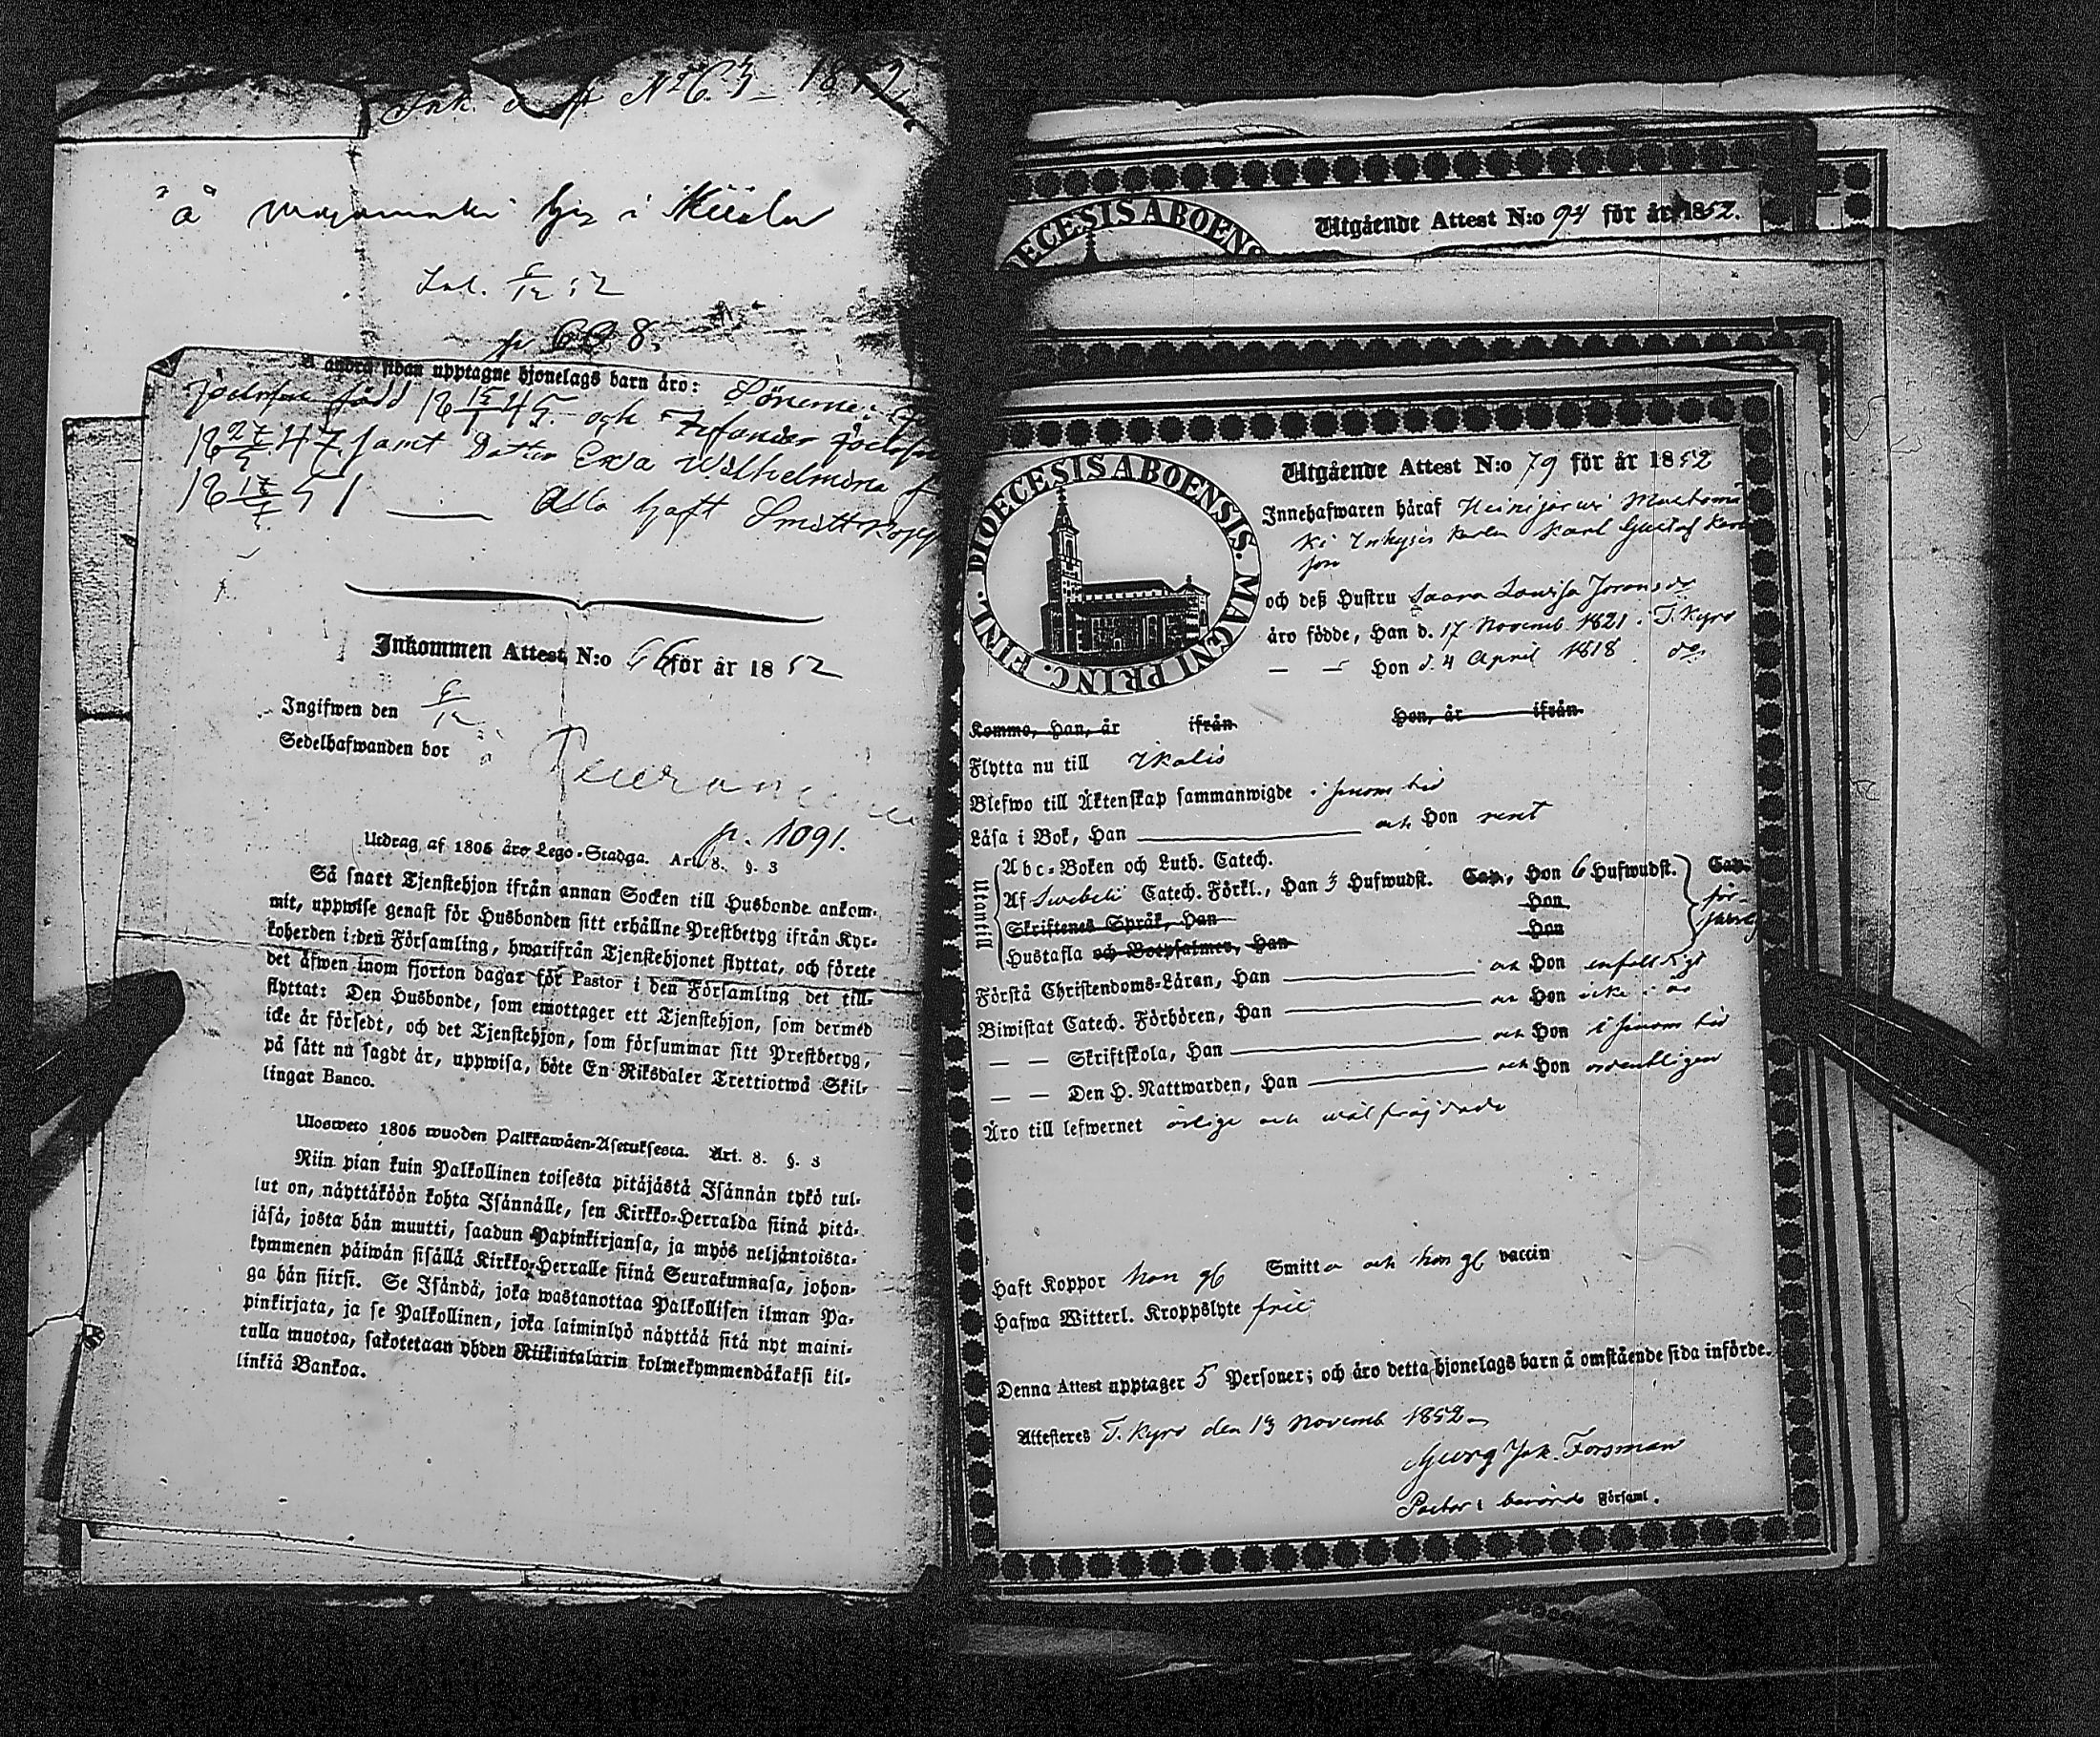 Ink. N:o 63 1852
å
Ink. 6/12 52
p. 698.
andra sidan upptagne hjonelags barn äro: Sönerne:
född 18 15/1 45. och Zefanias
18 27/ 47. samt Dottren Ewa Wilhelmina
18 51 Alla haft Smittkopp
Inkommen Attest N:o 66 för år 1852
Ingifwen den 6/12
Sedelhafwanden bor å
p. 1091.
Utdrag af 1805 års Lego-Stadga. Art. 8. §. 3
Så snart Tjenstehjon ifrån annan Socken till Husbonde ankom-
mit, uppwise genast för Husbonden sitt erhållne Prestbetyg ifrån Kyr-
koherden i den Församling, hwarifrån Tjenstehjonet flyttat, och förete
det äfwen inom fjorton dagar för Pastor i den Församling det till-
flyttat: Den Husbonde, som emottager ett Tjenstehjon, som dermed
icke är försedt, och det Tjenstehjon, som försummar sitt Prestbetyg,
på sätt nu sagdt är, uppwisa, böte En Riksdaler Trettiotwå Skil-
lingar Banco.
Ulosweto 1805 wuoden Palkkawäen-Asetuksesta. Art. 8. §. 3
Niin pian kuin Palkollinen toisesta pitäjästä Isännän tykö tul-
lut on, näyttäköön kohta Isännälle, sen Kirkko-Herralda siinä pitä-
jäsä, josta hän muutti, saadun Papinkirjansa, ja myös neljäntoista-
kymmenen päiwän sisällä Kirkko-Herralle siinä Seurakunnasa, johon-
ga hän siirsi. Se Isändä, joka wastanottaa Palkollisen ilman Pa-
pinkirjata, ja se Palkollinen, joka laiminlyö näyttää sitä nyt maini-
tulla muotoa, sakotetaan yhden Riikintalarin kolmekymmendäkaksi kil-
linkiä Bankoa.
DIOECESIS ABOENS
Utgående Attest N:o 94 för år 1852.
DIOECESIS ABOENSIS. MAGNI PRINC. FINL.
Utgående Attest N:o 79 för år 1852
Innehafwaren häraf Heinijärwi
Inhyses Karl Gustaf
son
och deß Hustru Saara Lowisa
äro födde, Han d. 17 Novemb. 1821. T. Kyro
— — Hon d. 4 April 1818. do
Komme, Han, år ifrån Hon, år ifrån
Flytta nu till Ikalis
Blefwo till Äktenskap sammanwigde i sinom tid
Läsa i Bok, Han och Hon rent
Utantill
Abc-Boken och Luth. Catech.
Af Swebelii Catech. Förkl., Han 3 Hufwudst. Cap., Hon 6 Hufwudst. Cap.
Skriftenes Språk, Han Hon
Hustafla och Botpsalmer, Han Hon
Förstå Christendoms-Läran, Han och Hon enfaldigt
Biwistat Catech. Förhören, Han och Hon icke i år
— — Skriftskola, Han och Hon i sinom tid
— — Den H. Nattwarden, Han och Hon ordentligen
Äro till lefwernet ärlige och wälfräjdade
Haft Koppor Smitto och hon vaccin
Hafwa Witterl. Kroppslyte frie
Denna Attest upptager 5 Personer; och äro detta hjonelags barn å omstående sida införde.
Attesteres T. Kyro den 13 Novemb 1852
Georg Jak. Forsman
Pastor i berörde Församl.